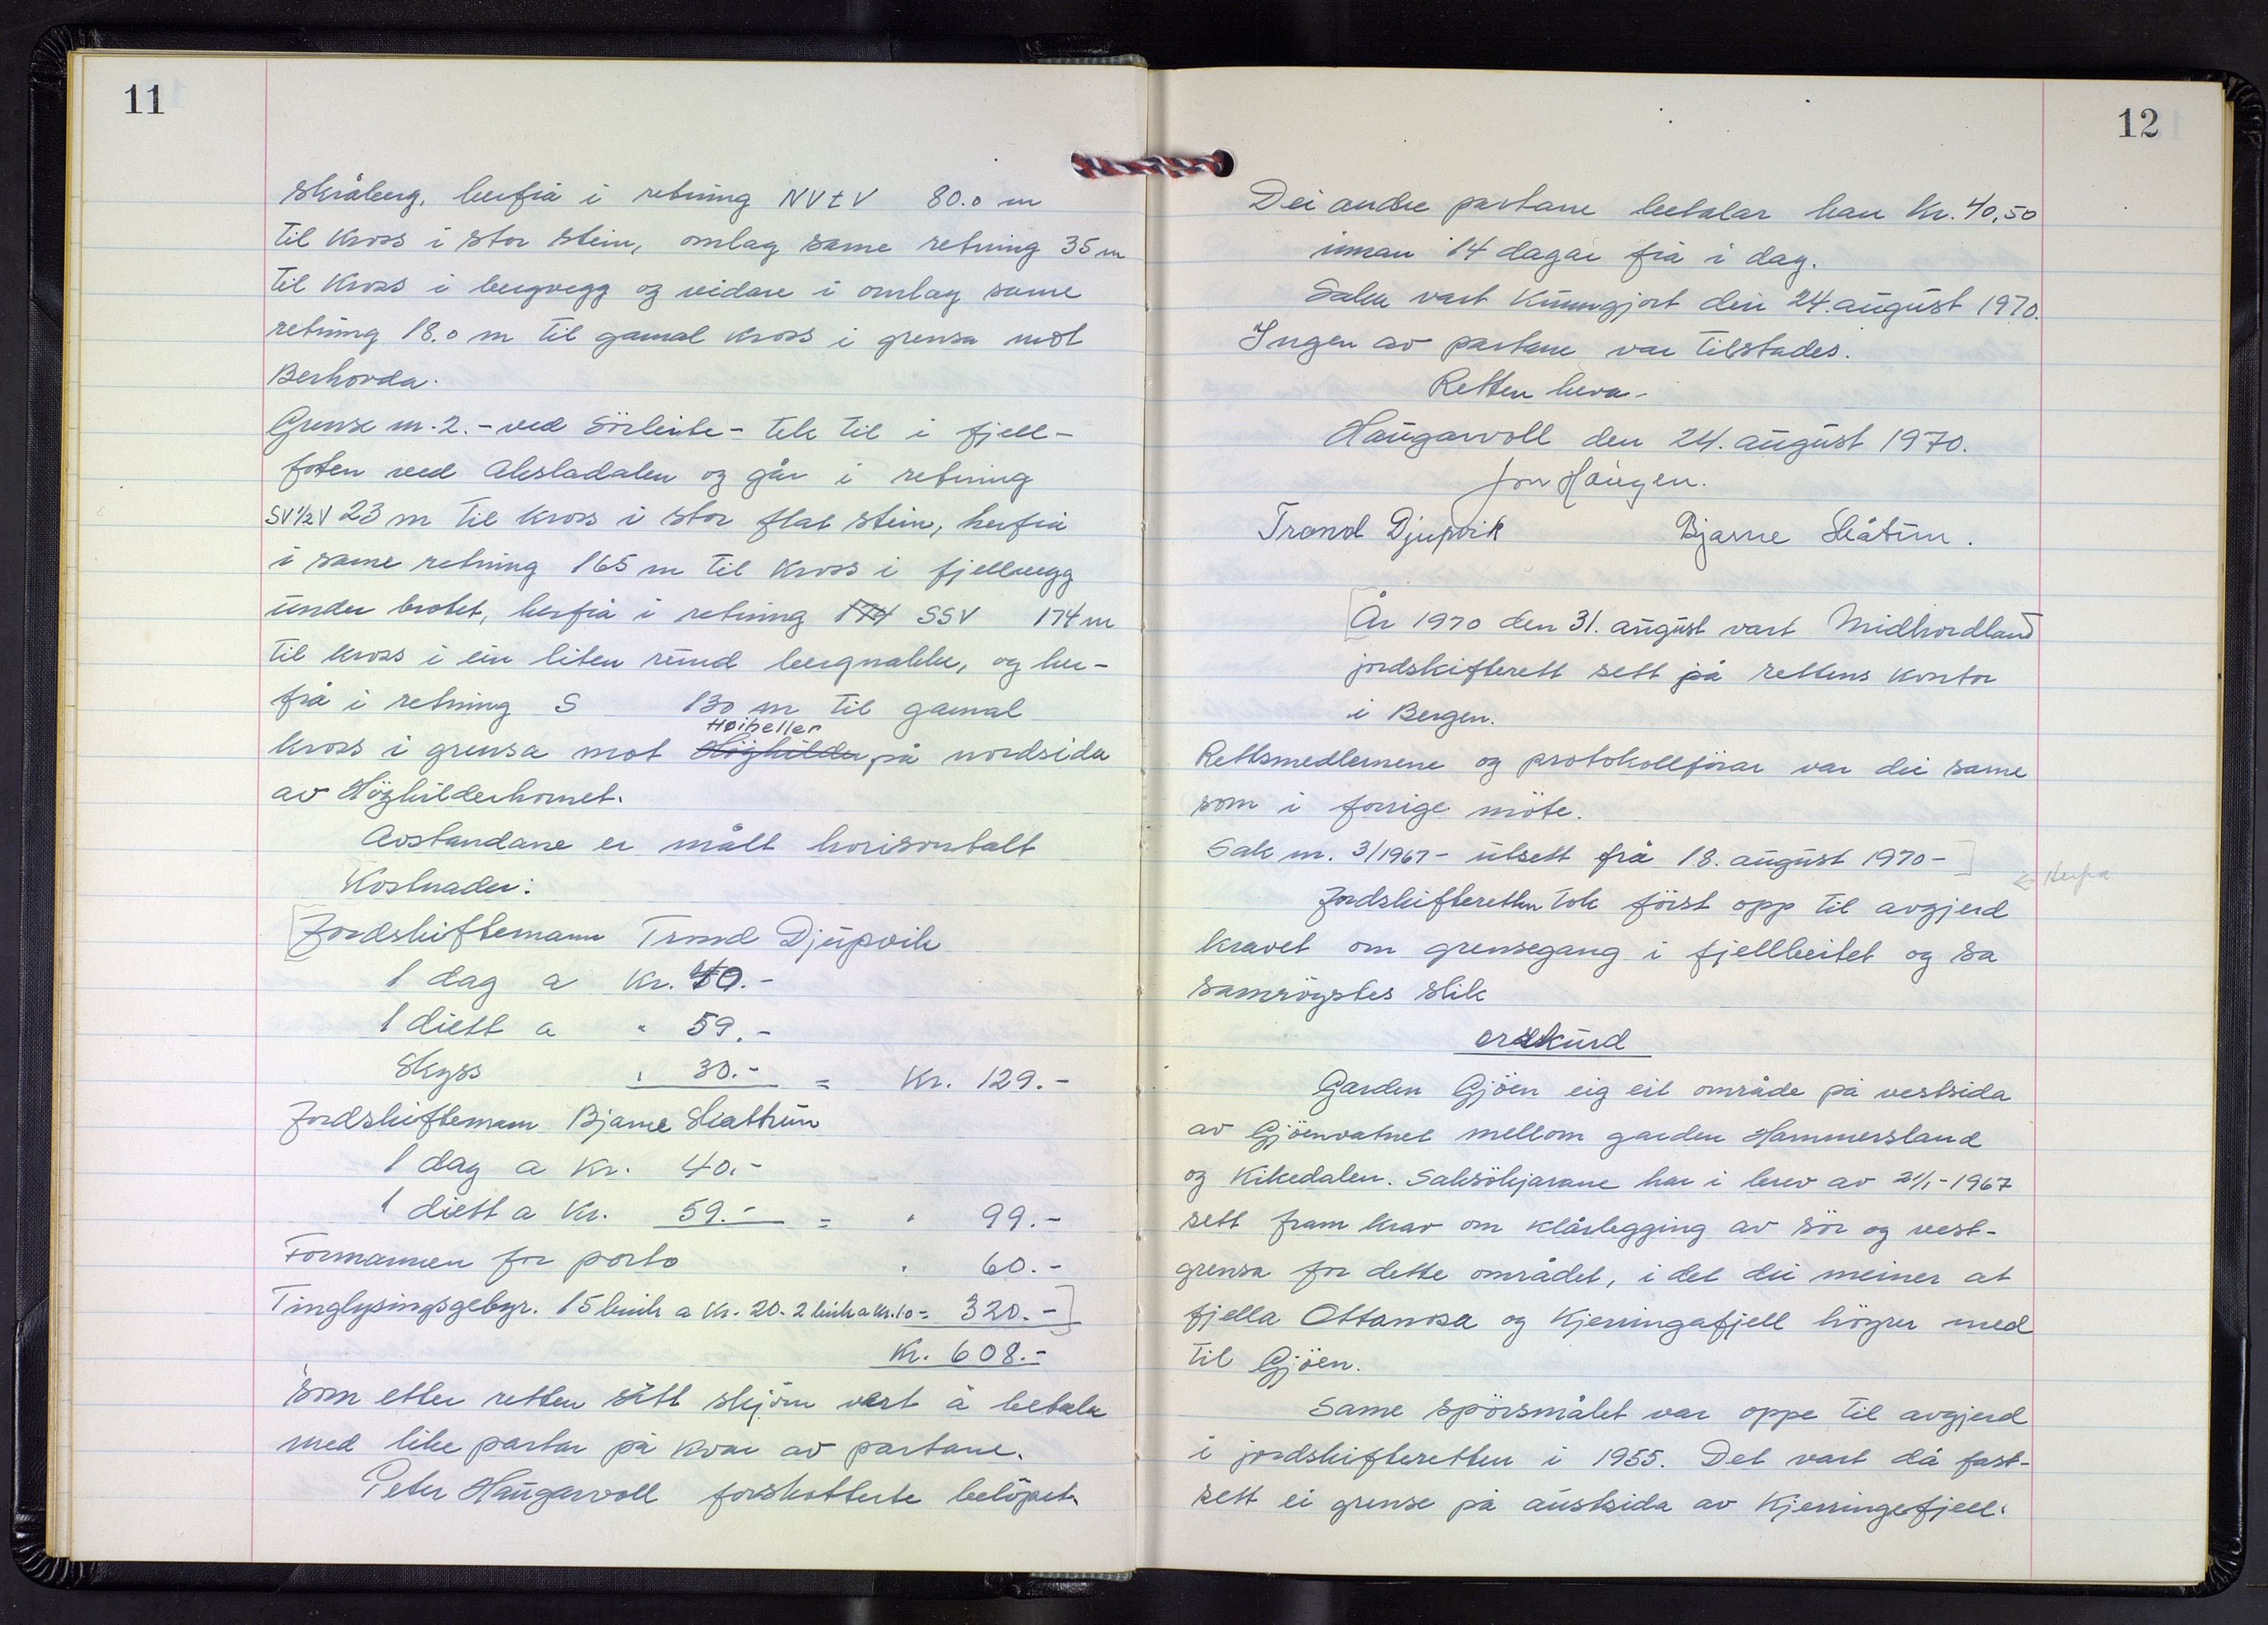 11
skråberg, herfrå i retning NVtV 80.0 m
til kross i stor stein, omlag same retning 35 m
til kross i bergvegg og vidare i omlag same
retning 18.0 m til gamal kross i grensa mot
Berhovda.
Grense nr. 2. - ved Sörleite - tek til i fjell-
foten ved Alsladalen og går i retning
SV½V 23 m til kross i stor flat stein, herfrå
i same retning 165 m til kross i fjellvegg
under brotet, herfrå i retning 174 SSV 174 m
til kross i ein liten rund bergnakke, og her-
frå i retning S 130 m til gamal
Høiheller
kross i grensa mot Höghilder på nordsida
av Höghilderhornet.
Avstandane er målt horisontalt
Kostnader:
[Jordskiftemann Trond Djupvik
1 dag a kr. 40.-
1 diett a " 59.-
Skyss " 30.- = Kr. 129.-
Jordskiftemann Bjarne Skattum
1 dag a Kr. 40.-
1 diett a Kr. 59.- = " 99.-
Formannen for porto " 60.-
Tinglysingsgebyr. 15 bruk a kr. 20.- 2 bruk a kr. 10 = 320.-]
Kr. 608.-
som etter retten sitt skjøn vert å betala
med like partar på kvar av partane.
Peter Haugarvoll forskotterte beløpet.
12
Dei andre partane betalar han kr. 40,50
innan 14 dagar frå i dag.
Saka vart kunngjort den 24. august 1970.
Ingen av partane var tilstades.
Retten heva.
Haugarvoll den 24. august 1970.
Jon Haugen.
Trond Djupvik Bjarne Skåtun.
[År 1970 den 31. august vart Midhordland
jordskifterett sett på rettens kontor
i Bergen.
Rettsmedlemene og protokollförar var dei same
som i forrige möte.
Sak nr. 3/1967 - utsett frå 18. august 1970 -]
← Herfra
Jordskifteretten tok först opp til avgjerd
kravet om grensegang i fjellbeitet og sa
samröystes slik
orskurd
Garden Gjöen eig eit område på vestsida
av Gjöenvatnet mellom garden Hammersland
og Kikedalen. Saksökjarane har i brev av 21/1-1967
sett fram krav om klårlegging av sör og vest-
grensa for dette området, i det dei meiner at
fjella Ottanosa og Kjerringafjell höyrer med
til Gjöen.
Same spörsmålet var oppe til avgjerd
i jordskifteretten i 1955. Det vart då fast-
sett ei grense på austsida av Kjerringefjell.